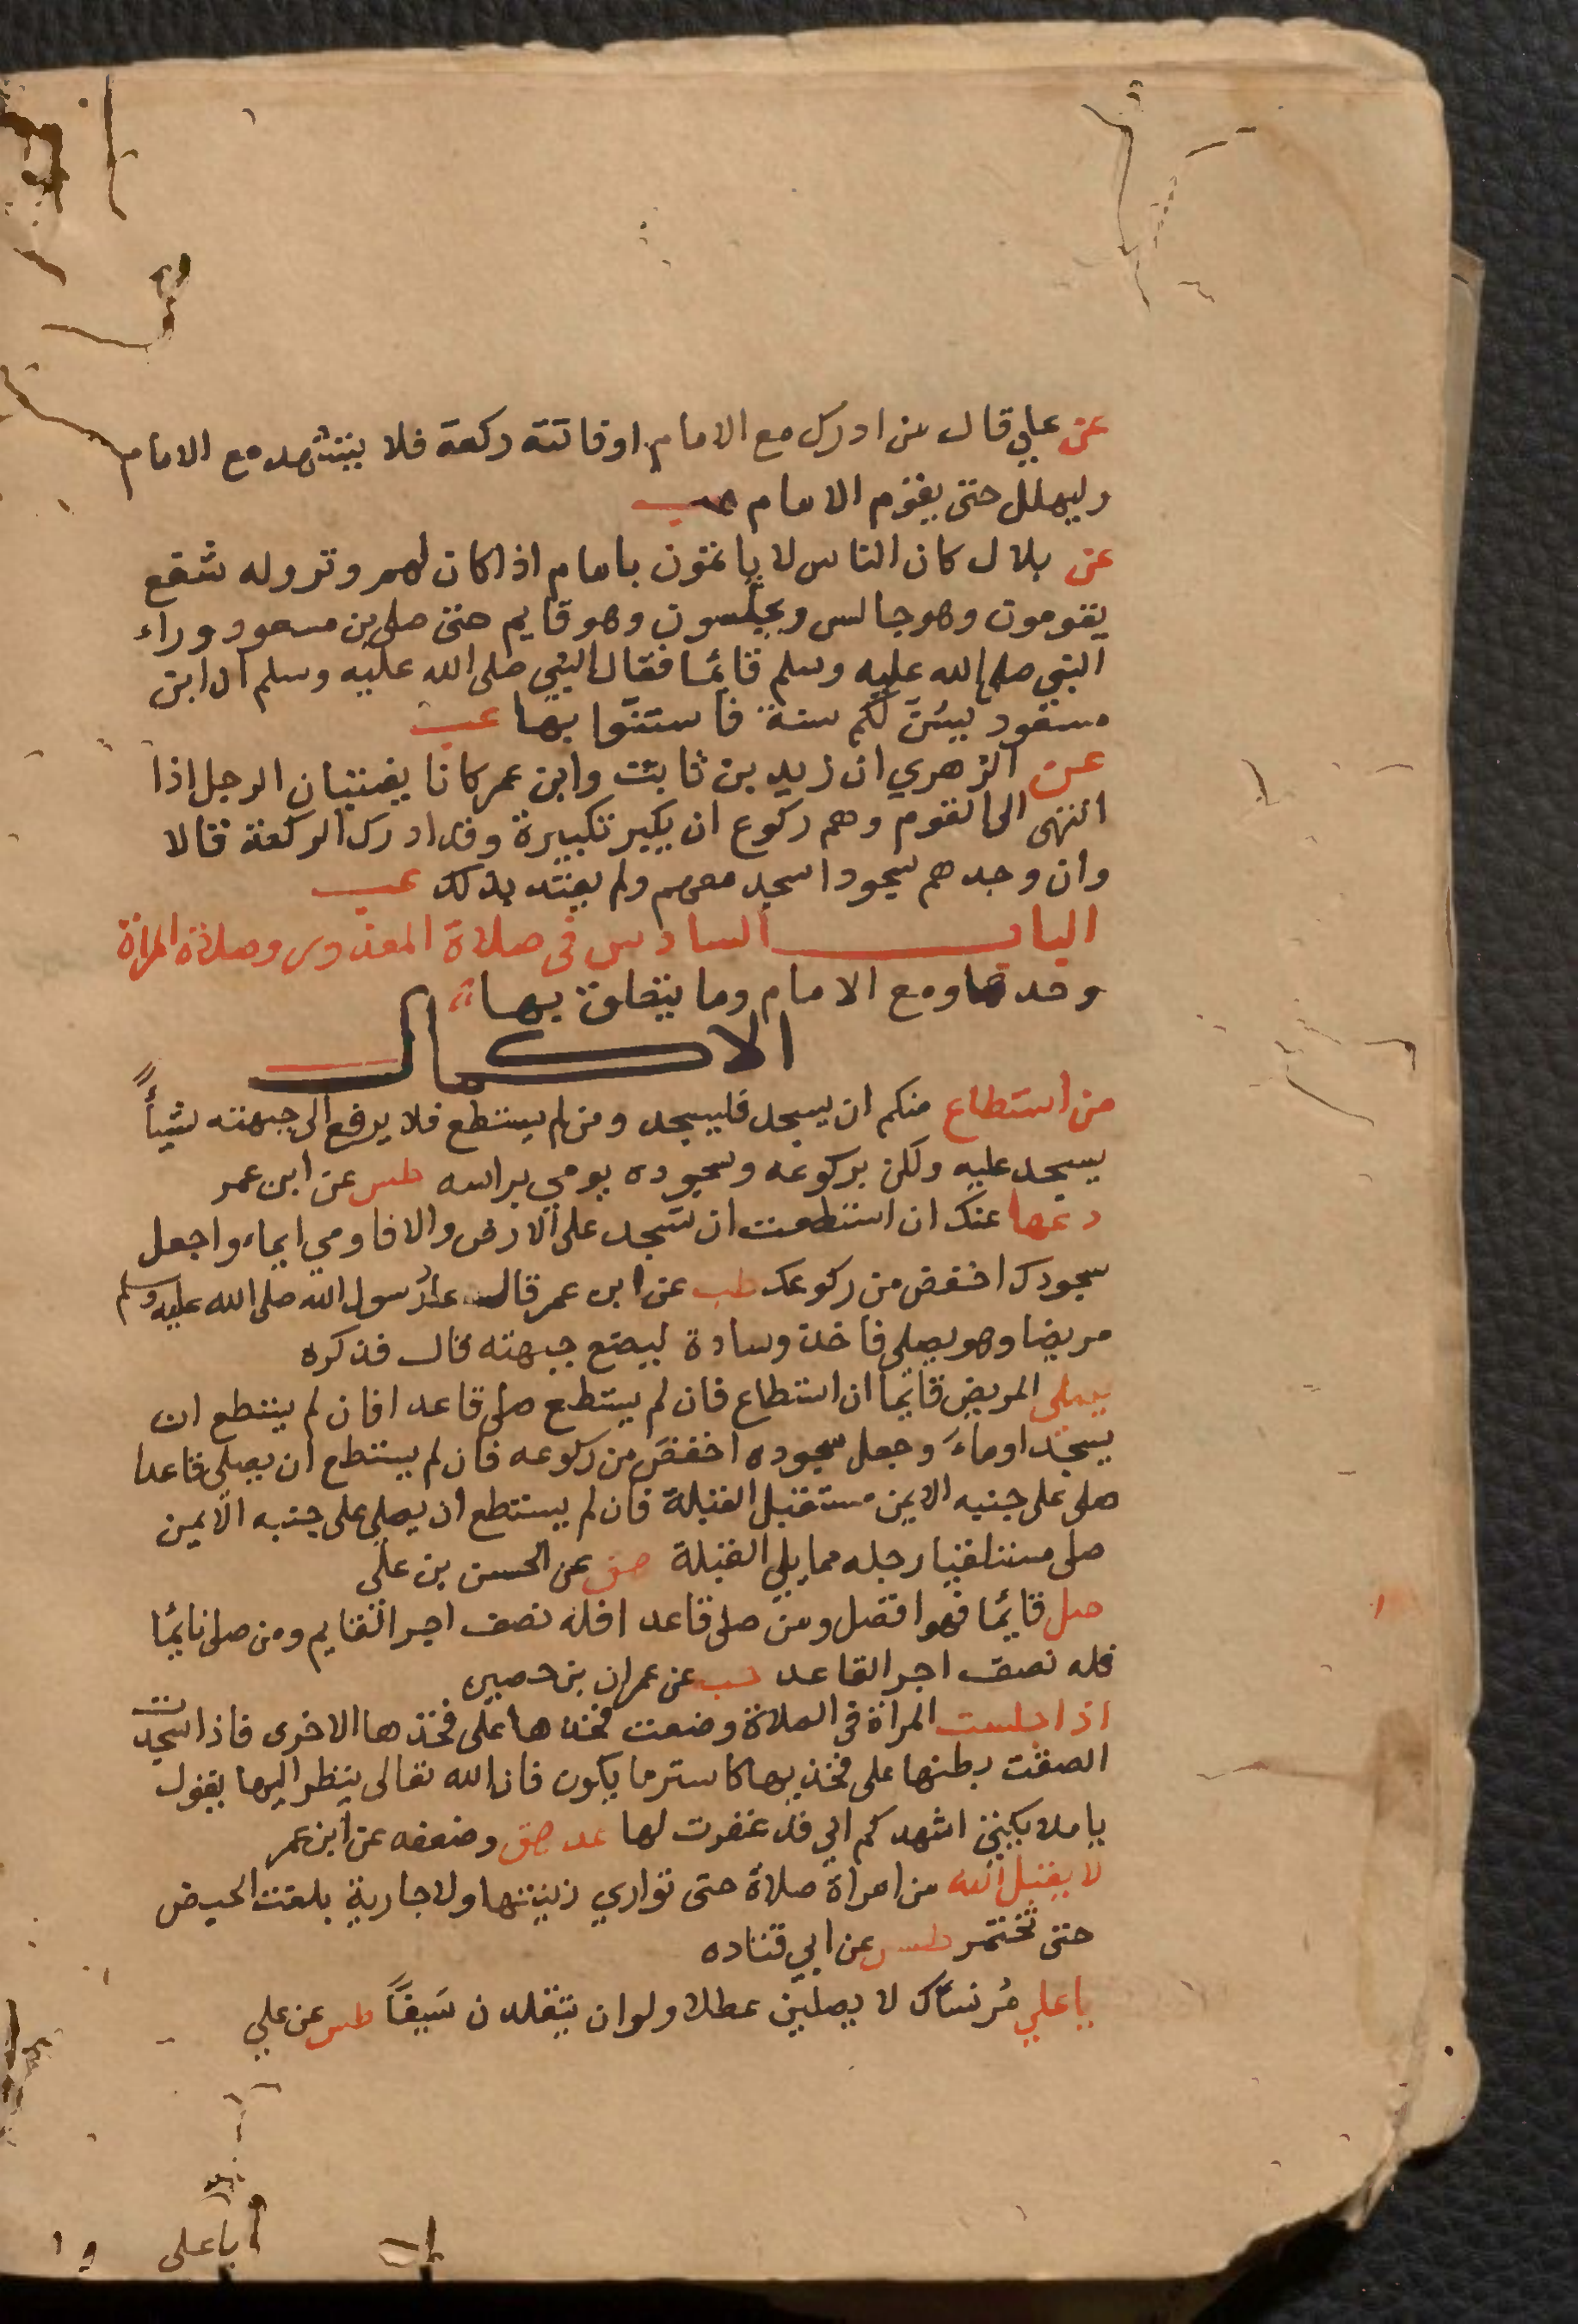 عن علي قال من ادرك مع الامام اوفاتته ركعة فلا يتشهد مع الامام
وليهلل حتى يقوم الامام عب
عن بلال كان الناس لا ياتمون بامام اذا كان لهم وتر وله شفع
يقومون وهو جالس ويجلسون وهو قايم حتى صلى بن مسعود وراء
النبي صلى الله عليه وسلم قائما فقال النبي صلى الله عليه وسلم ان ابن
مسعود بين لكم سنة فاستنوا بها عب
عن الزهري ان زيد بن ثابت وابن عمر كانا يفتيان الرجل اذا
انتهى الى القوم وهم ركوع ان يكبر تكبيرة وقد ادرك الركعة قالا
وان وجدهم سجودا سجد معهم ولم يعتد بذلك عب
الباب السادس في صلاة المعذور وصلاة المراة
وحدها ومع الامام وما يتعلق بها
الاكمال
من استطاع منكم ان يسجد فليسجد ومن لم يستطع فلا يرفع الى جبهته شيأً
يسجد عليه ولكن بركوعه وسجوده يومي براسه طس عن ابن عمر
دعها عنك ان استطعت ان تسجد على الارض والا فاومي ايماء واجعل
سجودك اخفض من ركوعك طب عن ابن عمر قال عاد رسول الله صلى الله عليه وسلم
مريضا وهو يصلى فاخذ وسادة ليضع جبهته قال فذكره
يصلى المريض قائما ان استطاع فان لم يستطع صلى قاعدا فان لم يستطع ان
يسجد اوماءَ وجعل سجوده اخفضَ من ركوعه فان لم يستطع ان يصلى قاعدا
صلى على جنبه الايمن مستقبل القبلة فان لم يستطع ان يصلى على جنبه الايمن
صلى مستلقيا رجله مما يلي القبلة هق عن الحسن بن على
صل قايما فهو افضل ومن صلى قاعدا فله نصف اجر القايم ومن صلى نائما
فله نصف اجر القاعد حب عن عمران بن حصين
اذا جلست المراة في الصلاة وضعت فخذها على فخذها الاخرى فاذا سجدت
الصقت بطنها على فخذيها كاستر ما يكون فان الله تعالى ينظر اليها يقول
يا ملايكتي اشهدكم اني قد غفرت لها عد هق وضعفه عن ابن عمر
لا يقبل الله من امراة صلاة حتى تواري زينتها ولا جارية بلغت الحيض
حتى تختمر طس عن ابي قتاده
يا علي مُر نساك لا يصلين عطلا ولو ان يتقلدن سَيفاً طس عن علي
يا على